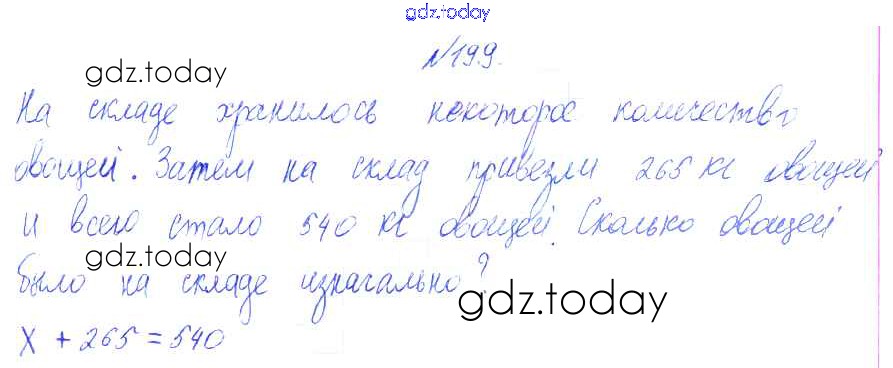 gdz.today
№199.
gdz.today
На складе хранилось некоторое количество
овощей. Затем на склад привезли 265 кг овощей
и всего стало 540 кг овощей. Сколько овощей
gdz.today
было на складе изначально?
gdz.today
x + 265 = 540